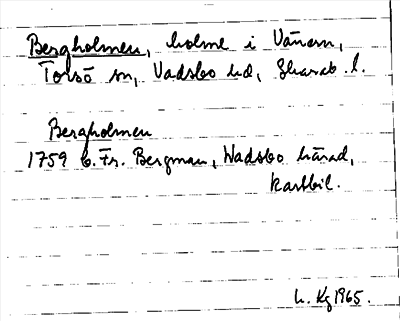 Bergholmen, holme i Vänern,
Torsö sn, Vadsbo hd, Skarab. l.
Bergholmen
1759 C. Fr. Bergman, Wadsbo härad,
kartbil.
L. Kg 1965.